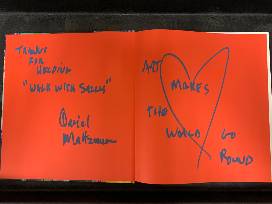 THANKS
FOR
HELPING
"WALK WITH SALLY"
David
ART
MAKES
THE
WORLD GO
ROUND